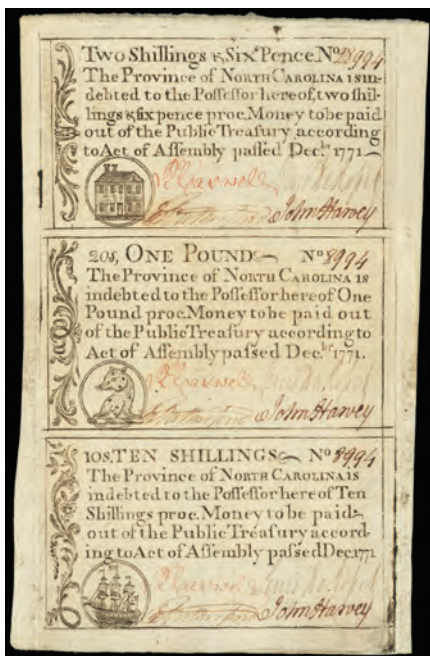 Two Shillings & Six Pence. No 28994
The Province of NORTH CAROLINA is in-
debted to the Poſſeſſor hereof, two ſhil-
lings & ſix pence proc. Money to be paid
out of the Public Treaſury according
to Act of Aſſembly paſſed Decbr. 1771.
R Caswell
John Harvey
20s, ONE POUND No 8994
The Province of NORTH CAROLINA IS
indebted to the Poſſeſſor here of One
Pound proc. Money to be paid out
of the Public Treaſury according to
Act of Aſſembly paſſed Decbr. 1771.
R Caswell
John Harvey
10s. TEN SHILLINGS No 8994
The Province of NORTH CAROLINA IS
indebted to the Poſſeſſor here of Ten
Shillings proc. Money to be paid
out of the Public Treaſury accord-
ing to Act of Aſſembly paſſed Dec. 1771
R Caswell
John Harvey